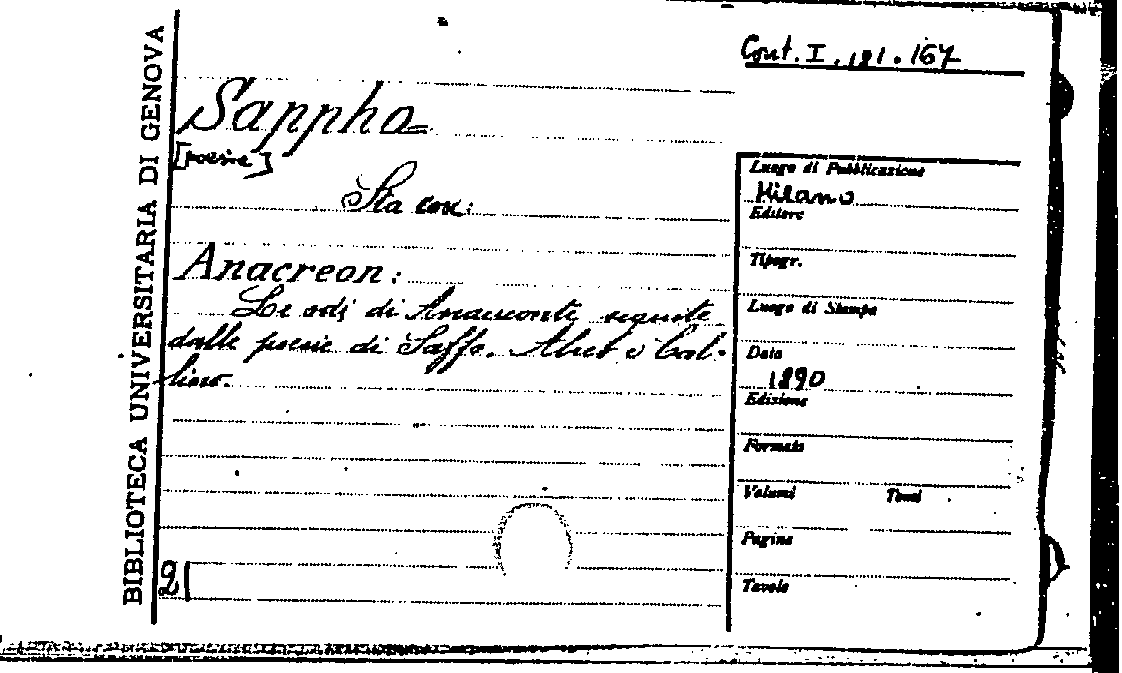 BIBLIOTECA UNIVERSITARIA DI GENOVA
Cont. I. 121.167
Sappho
[poesie]
Sta con:
Anacreon:
Le odi di Anacreonte seguite
dalle poesie di Saffo. Alceo e Cal-
lino.
Luogo di Pubblicazione
Milano
Editore
Tipogr.
Luogo di Stampa
Data
1890
Edizione
Formato
Volumi Tomi
Pagine
Tavole
21